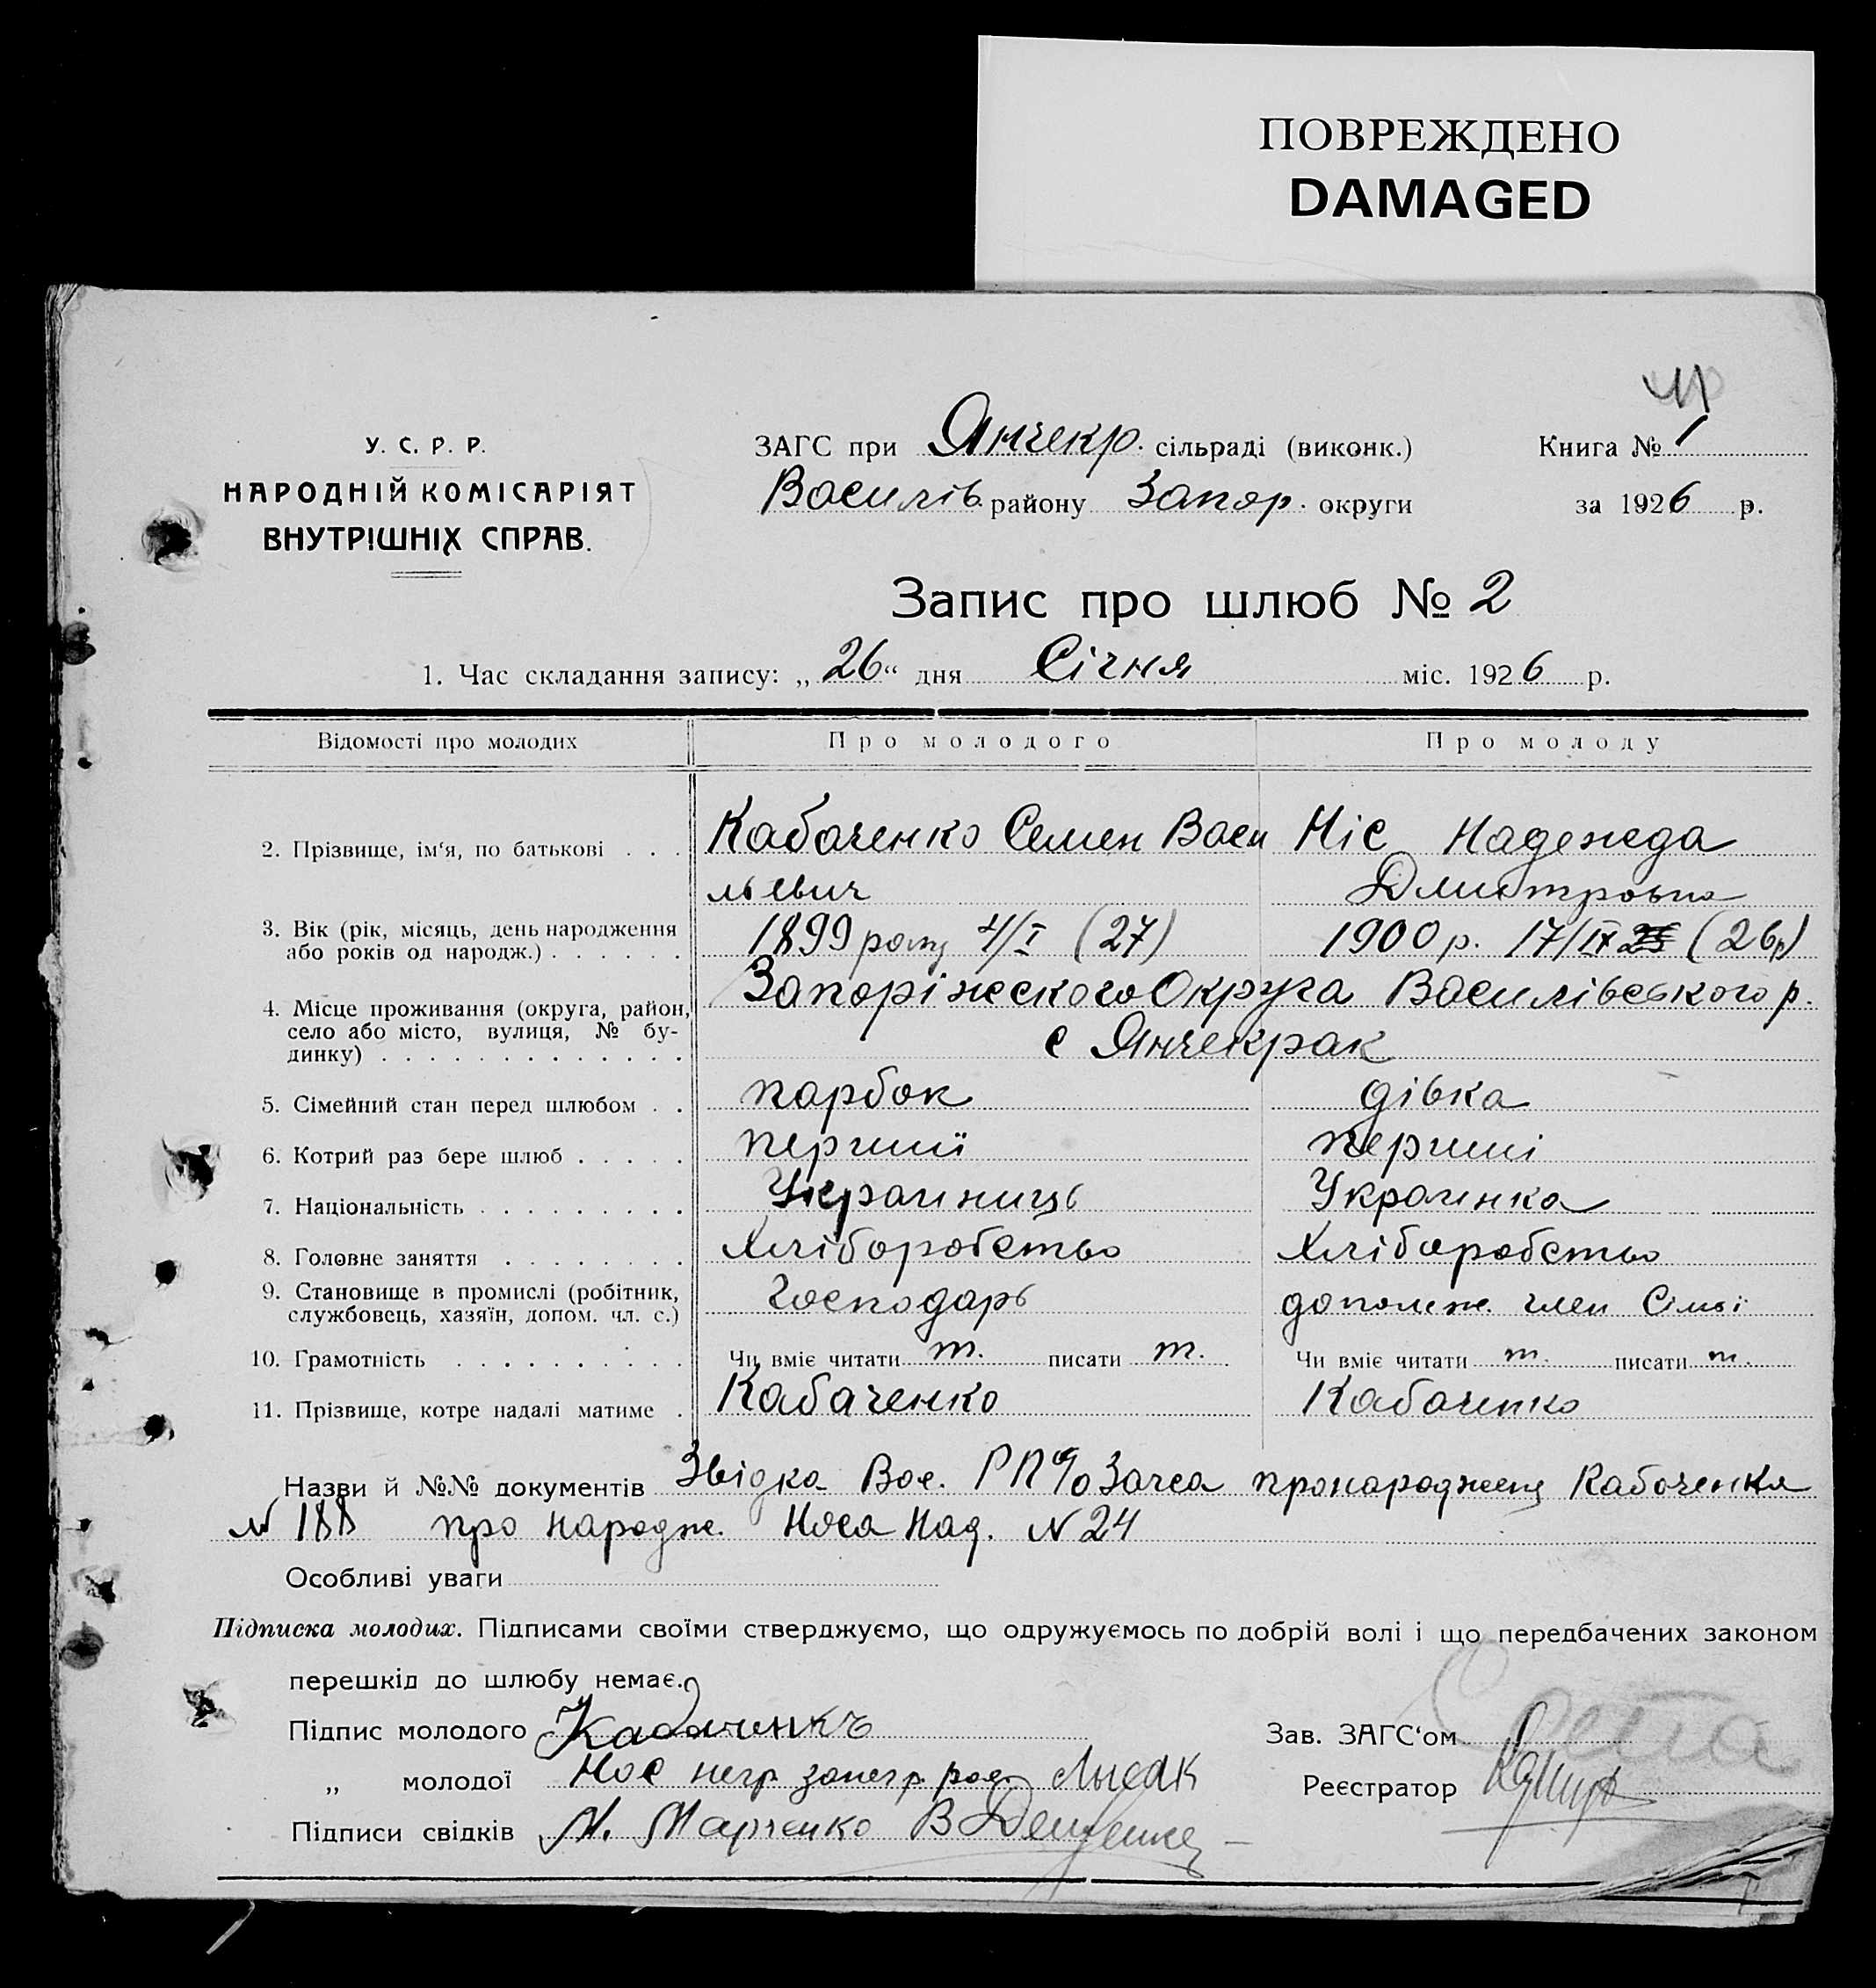 ПОВРЕЖДЕНО
DAMAGED
У. С. Р. Р.
НАРОДНІЙ КОМІСАРІЯТ
ВНУТРІШНІХ СПРАВ.
ЗАГС при Янчекр. сільраді (виконк.)
Василів. району Запор. округи
Книга № 1
за 1926 р.
Запис про шлюб № 2
1. Час складання запису: „26“ дня Січня міс. 1926 р.
Відомості про молодих Про молодого Про молоду
2. Прізвище, ім‘я, по батькові . . . Кабаченко Семен Васи Ніс Надежда
льевич Дмитровна
3. Вік (рік, місяць, день народження
або років од народж.) . . . . . . 1899 року 4/I (27) 1900 р. 17/IX (26р)
4. Місце проживання (округа, район,
село або місто, вулиця, № бу-
динку) . . . . . . . . . . . . .
Запоріжского Округа Василівського р.
с Янчекрак
5. Сімейний стан перед шлюбом . . парбок дівка
6. Котрий раз бере шлюб . . . . . перший перший
7. Національність . . . . . . . . . Украиниць Украинка
8. Головне заняття . . . . . . . . Хліборобство Хліборобство
9. Становище в промислі (робітник,
службовець, хазяїн, допом. чл. с.) Господарь допомж. член Сімьї
10. Грамотність . . . . . . . . . . Чи вміє читати т. писати т. Чи вміє читати т. писати т.
11. Прізвище, котре надалі матиме . Кабаченко Кабаченко
Назви й №№ документів Звідка Вас. Загса про народжену Кабаченка
№ 188 про народж. Носа Над. № 24
Особливі уваги
Підписка молодих. Підписами своїми стверджуємо, що одружуємось по добрій волі і що передбачених законом
перешкід до шлюбу немає.
Підпис молодого Кабаченкъ
„ молодої Нос негр за негр рос. Лысак
Підписи свідків М. Марченко В
Зав. ЗАГС‘ом
Реєстратор